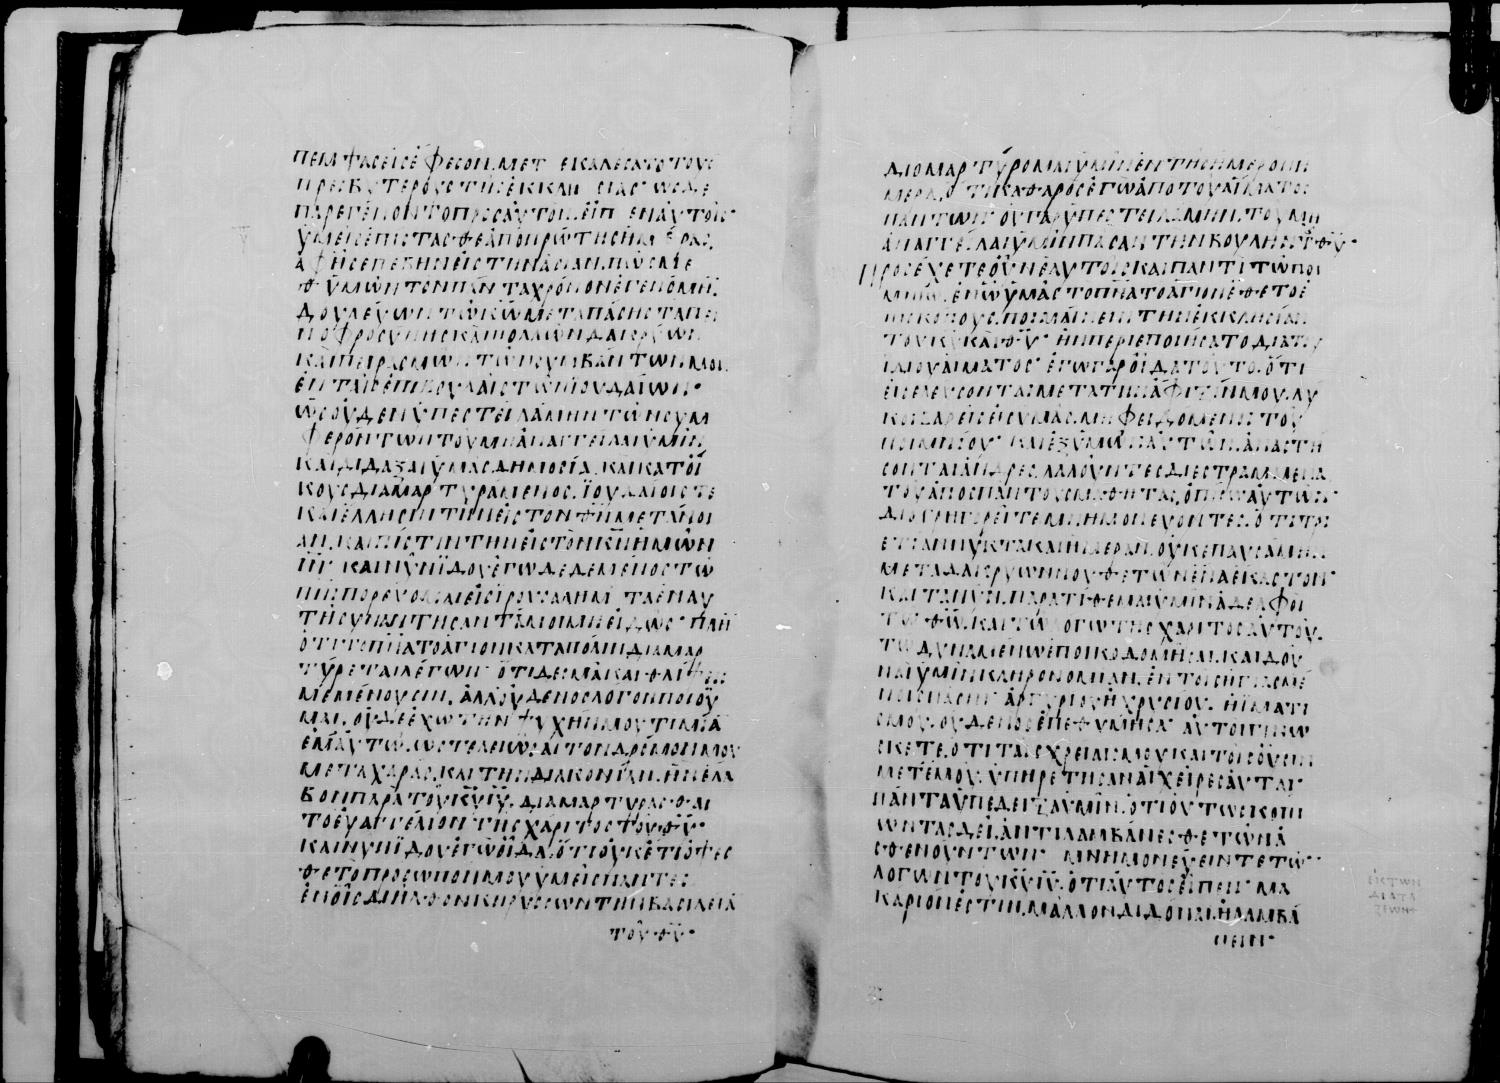 ΠΕΜΨΑΣΕΙΣΕΦΕΣΟΝ.ΜΕΤΕΚΑΛΕΣΑΤΟΤΟΥΣ
ΠΡΕΣΒΥΤΕΡΟΥΣΤΗΣΕΚΚΛΗΣΙΑΣ· ΩΣΔΕ
ΠΑΡΕΓΕΝΟΝΤΟΠΡΟΣΑΥΤΟΝ.ΕΙΠΕΝΑΥΤΟΙΣ·
ΥΜΕΙΣΕΠΙΣΤΑΣΘΕΑΠΟΠΡΩΤΗΣΗΜΕΡΑΣ,
ΑΦΗΣΕΠΕΒΗΝΕΙΣΤΗΝΑΣΙΑΝ.ΠΩΣΜΕ
Θ ΥΜΩΝΤΟΝΠΑΝΤΑΧΡΟΝΟΝΕΓΕΝΟΜΗΝ.
ΔΟΥΛΕΥΩΝΤΩΚΩΜΕΤΑΠΑΣΗΣΤΑΠΕΙ
ΝΟΦΡΟΣΥΝΗΣΚΑΙΠΟΛΛΩΝΔΑΚΡΥΩΝ
ΚΑΙΠΕΙΡΑΣΜΩΝΤΩΝΣΥΜΒΑΝΤΩΝΜΟΙ
ΕΝΤΑΙΣΕΠΙΒΟΥΛΑΙΣΤΩΝΙΟΥΔΑΙΩΝ·
ΩΣΟΥΔΕΝΥΠΕΣΤΕΙΛΑΜΗΝΤΩΝΣΥΜ
ΦΕΡΟΝΤΩΝΤΟΥΜΗΑΝΑΓΓΕΙΛΑΙΥΜΙΝ
ΚΑΙΔΙΔΑΞΑΙΥΜΑΣΔΗΜΟΣΙΑ.ΚΑΙΚΑΤΟΙ
ΚΟΥΣΔΙΑΜΑΡΤΥΡΑΜΕΝΟΣ.ΪΟΥΔΑΙΟΙΣΤΕ
ΚΑΙΕΛΛΗΣΙΝΤΗΝΕΙΣΤΟΝΘΝΜΕΤΑΝΟΙ
ΑΝ.ΚΑΙΠΙΣΤΙΝΤΗΝΕΙΣΤΟΝΚΝΗΜΩΝ
ΙΝ· ΚΑΙΝΥΝΪΔΟΥΕΓΩΔΕΔΕΜΕΝΟΣΤΩ
ΠΝΙΠΟΡΕΥΟΜΑΙΕΙΣΙΡΟΥΣΑΛΗΜ ΤΑΕΝΑΥ
ΤΗΣΥΝΑΝΤΗΣΑΝΤΑΜΟΙΜΗΕΙΔΩΣ· ΠΛΗΝ
ΟΤΙΤΟΠΝΑΤΟΑΓΙΟΝΚΑΤΑΠΟΛΙΝΔΙΑΜΑΡ
ΤΥΡΕΤΑΙΛΕΓΩΝ· ΟΤΙΔΕΣΜΑΚΑΙΘΛΙΨΕΙΣ
ΜΕΜΕΝΟΥΣΙΝ. ΑΛΛΟΥΔΕΝΟΣΛΟΓΟΝΠΟΙΟΥ
ΜΑΙ. ΟΥΔΕΕΧΩΤΗΝΨΥΧΗΝΜΟΥΤΙΜΙΑ
ΕΜΑΥΤΩ.ΩΣΤΕΛΕΙΩΣΑΙΤΟΝΔΡΟΜΟΝΜΟΥ
ΜΕΤΑΧΑΡΑΣ.ΚΑΙΤΗΝΔΙΑΚΟΝΙΑΝ.ΗΝΕΛΑ
ΒΟΝΠΑΡΑΤΟΥΚΥΙΥ. ΔΙΑΜΑΡΤΥΡΑΣΘΑΙ
ΤΟΕΥΑΓΓΕΛΙΟΝΤΗΣΧΑΡΙΤΟΣΤΟΥΘΥ·
ΚΑΙΝΥΝΪΔΟΥΕΓΩΟΙΔΑ.ΟΤΙΟΥΚΕΤΙΟΨΕΣ
ΘΕΤΟΠΡΟΣΩΠΟΝΜΟΥΥΜΕΙΣΠΑΝΤΕΣ
ΕΝΟΙΣΔΙΗΛΘΟΝΚΗΡΥΣΣΩΝΤΗΝΒΑΣΙΛΕΙΑ
ΤΟΥΘΥ·
ΔΙΟΜΑΡΤΥΡΟΜΑΙΥΜΙΝΕΝΤΗΣΗΜΕΡΟΝΗ
ΜΕΡΑ,ΟΤΙΚΑΘΑΡΟΣΕΓΩΑΠΟΤΟΥΑΙΜΑΤΟΣ
ΠΑΝΤΩΝ· ΟΥΓΑΡΥΠΕΣΤΕΙΛΑΜΗΝ.ΤΟΥΜΗ
ΑΝΑΓΓΕΙΛΑΙΥΜΙΝΠΑΣΑΝΤΗΝΒΟΥΛΗΝΤΟΥΘΥ·
ΠΡΟΣΕΧΕΤΕΟΥΝΕΑΥΤΟΙΣΚΑΙΠΑΝΤΙΤΩΠΟΙ
ΜΝΙΩ.ΕΝΩΥΜΑΣΤΟΠΝΑΤΟΑΓΙΟΝΕΘΕΤΟΕ
ΠΙΣΚΟΠΟΥΣ.ΠΟΙΜΑΙΝΕΙΝΤΗΝΕΚΚΛΗΣΙΑΝ
ΤΟΥΚΥΚΑΙΘΥ· ΗΝΠΕΡΙΕΠΟΙΗΣΑΤΟΔΙΑΤΟΥ
ΙΔΙΟΥΑΙΜΑΤΟΣ· ΕΓΩΓΑΡΟΙΔΑΤΟΥΤΟ.ΟΤΙ
ΕΙΣΕΛΕΥΣΟΝΤΑΙΜΕΤΑΤΗΝΑΦΙΞΙΝΜΟΥ.ΛΥ
ΚΟΙΒΑΡΕΙΣΕΙΣΥΜΑΣ.ΜΗΦΕΙΔΟΜΕΝΟΙΤΟΥ
ΠΟΙΜΝΙΟΥ· ΚΑΙΕΞΥΜΩΝΑΥΤΩΝ.ΑΝΑΣΤΗ
ΣΟΝΤΑΙΑΝΔΡΕΣ.ΛΑΛΟΥΝΤΕΣΔΙΕΣΤΡΑΜΜΕΝΑ
ΤΟΥΑΠΟΣΠΑΝΤΟΥΣΜΑΘΗΤΑΣ,ΟΠΙΣΩΑΥΤΩΝ·
ΔΙΟΓΡΗΓΟΡΕΙΤΕΜΝΗΜΟΝΕΥΟΝΤΕΣ.ΟΤΙΤΡΙ
ΕΤΙΑΝΝΥΚΤΑΚΑΙΗΜΕΡΑΝ.ΟΥΚΕΠΑΥΣΑΜΗΝ
ΜΕΤΑΔΑΚΡΥΩΝΝΟΥΘΕΤΩΝΕΝΑΕΚΑΣΤΟΝ·
ΚΑΙΤΑΝΥΝ.ΠΑΡΑΤΙΘΕΜΑΙΥΜΙΝΑΔΕΛΦΟΙ
ΤΩΘΩ.ΚΑΙΤΩΛΟΓΩΤΗΣΧΑΡΙΤΟΣΑΥΤΟΥ.
ΤΩΔΥΝΑΜΕΝΩΕΠΟΙΚΟΔΟΜΗΣΑΙ.ΚΑΙΔΟΥ
ΝΑΙΥΜΙΝΚΛΗΡΟΝΟΜΙΑΝ.ΕΝΤΟΙΣΗΓΙΑΣΜΕ
ΝΟΙΣΠΑΣΙΝ· ΑΡΓΥΡΙΟΥΗΧΡΥΣΙΟΥ. ΗΙΜΑΤΙ
ΣΜΟΥ.ΟΥΔΕΝΟΣΕΠΕΘΥΜΗΣΑ· ΑΥΤΟΙΓΙΝΩ
ΣΚΕΤΕ.ΟΤΙΤΑΙΣΧΡΕΙΑΙΣΜΟΥΚΑΙΤΟΙΣΟΥΣΙΝ
ΜΕΤΕΜΟΥ.ΥΠΗΡΕΤΗΣΑΝΑΙΧΕΙΡΕΣΑΥΤΑΙ·
ΠΑΝΤΑΥΠΕΔΕΙΞΑΥΜΙΝ.ΟΤΙΟΥΤΩΣΚΟΠΙ
ΩΝΤΑΣΔΕΙ.ΑΝΤΙΛΑΜΒΑΝΕΣΘΕΤΩΝΑ
ΣΘΕΝΟΥΝΤΩΝ· ΜΝΗΜΟΝΕΥΕΙΝΤΕΤΩ
ΛΟΓΩΝΤΟΥΚΥΙΥ.ΟΤΙΑΥΤΟΣΕΙΠΕΝ· ΜΑ
ΚΑΡΙΟΝΕΣΤΙΝ.ΜΑΛΛΟΝΔΙΔΟΝΑΙ.ΗΛΑΜΒΑ
ΝΕΙΝ·
ΕΚΤΩΝ
ΔΙΑΤΑ
ΞΕΩΝ